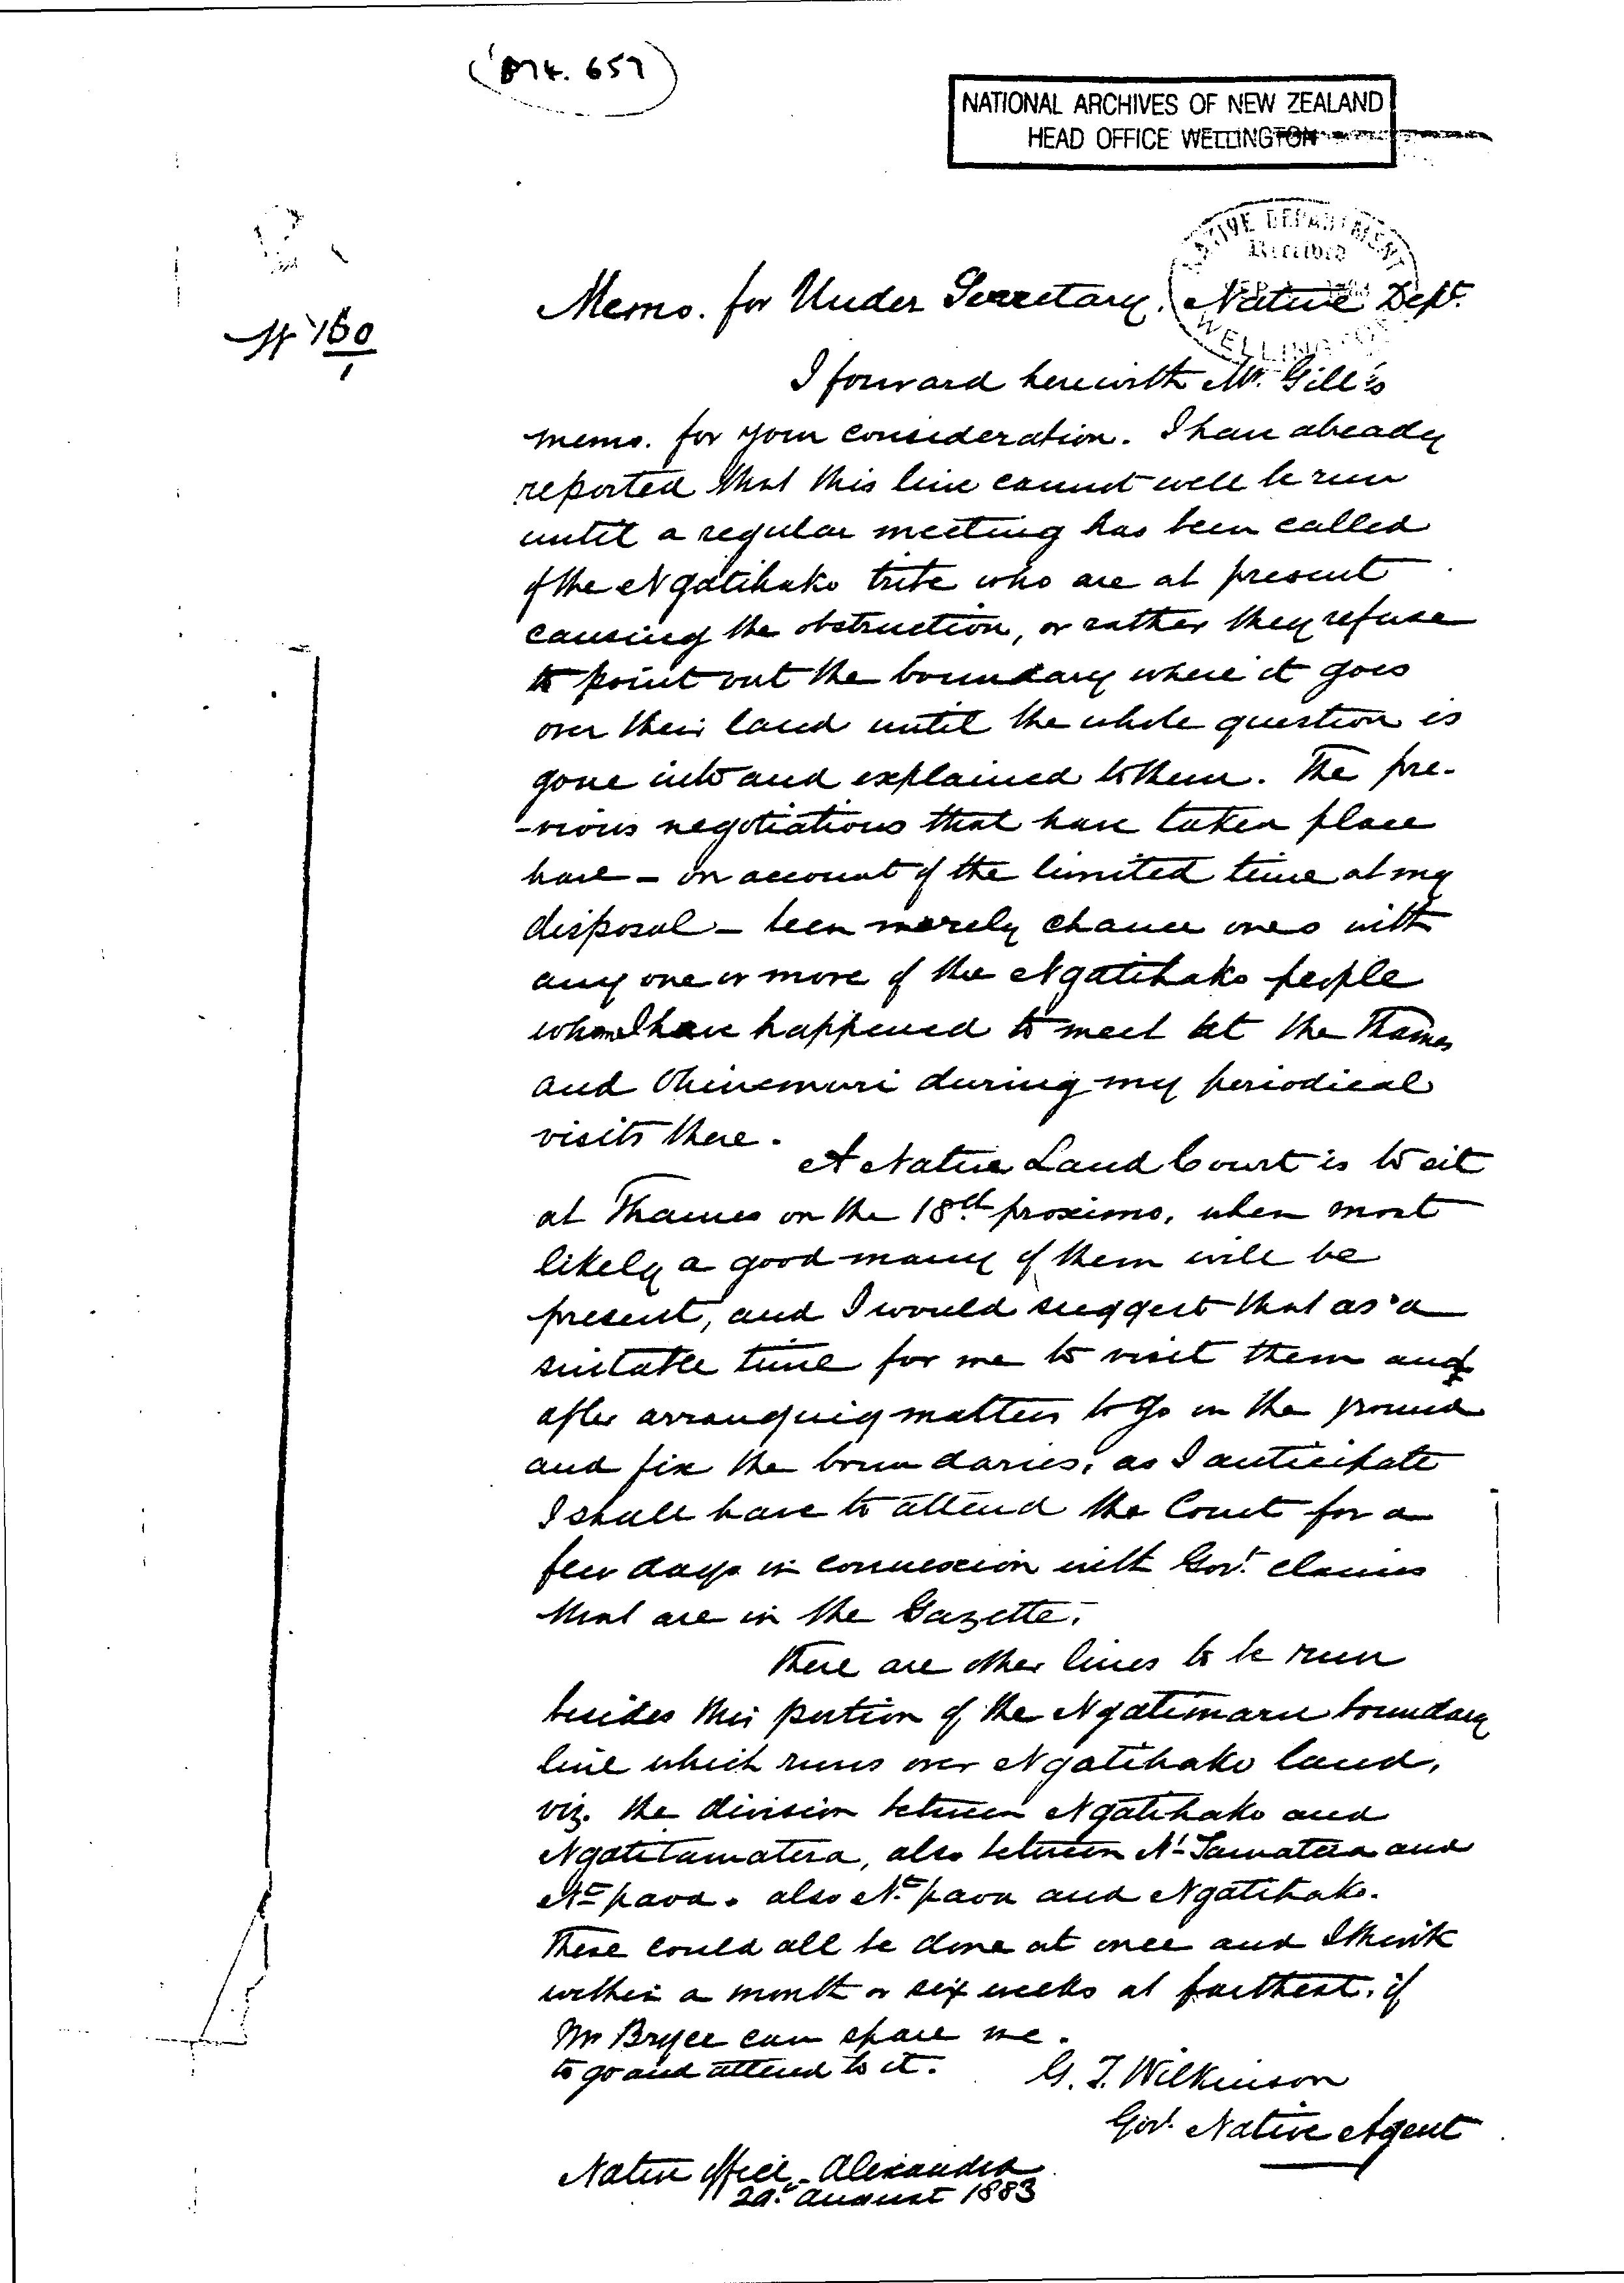 ('874. 657)
NATIONAL ARCHIVES OF NEW ZEALAND
HEAD OFFICE WELLINGTON
NATIVE DEPARTMENT
Received
WELLINGTON
Memo. for Under Secretary, Native Dept.
160
1
I forward herewith Mr. Gill's
memo. for your consideration. I have already
reported that this line cannot well be run
until a regular meeting has been called
of the Ngatihako tribe who are at present
causing the obstruction, or rather they refuse
to point out the boundary where it goes
over their land until the whole question is
gone into and explained to them. The pre-
-vious negotiations that have taken place
have - on account of the limited time at my
disposal - been merely chance ones with
any one or more of the Ngatihako people
whom I have happened to meet at the Thames
and Ohinemuri during my periodical
visits there.
A Native Land Court is to sit
at Thames on the 18th proximo, when most
likely a good many of them will be
present, and I would suggest that as a
suitable time for me to visit them and
after arranging matters to go on the ground
and fix the boundaries, as I anticipate
I shall have to attend the Court for a
few days in connexion with Govt. claims
that are in the Gazette.
There are other lines to be run
besides this portion of the Ngatimaru boundary
line which runs over Ngatihako land,
viz. the division between Ngatihako and
Ngatitamatera, also between Nt Tamatera and
Nt paoa. also Nt paoa and Ngatihako.
These could all be done at once and I think
within a month or six weeks at farthest, if
Mr Bryce can spare me.
to go and attend to it.
G. T. Wilkinson
Govt. Native Agent
Native Office, Alexandra
29th August 1883